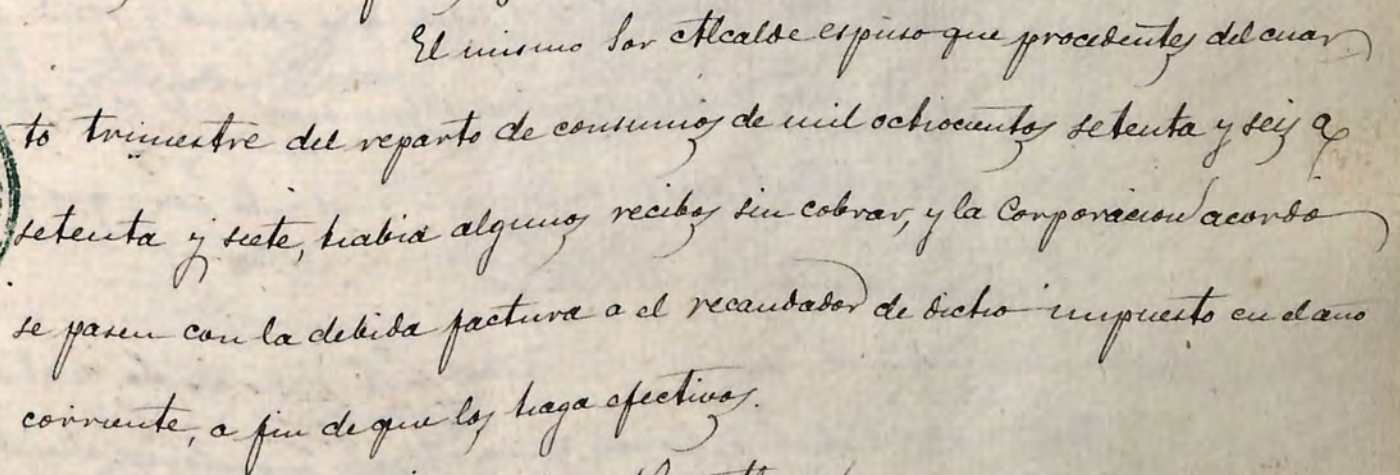 El mismo Sor Alcalde espuso que procedentes del cuar
to trimestre del reparto de consumos de mil ochocientos setenta y seis a
setenta y siete, habia algunos recibos sin cobrar, y la Corporacion acordó
se pasen con la debida factura a el recaudador de dicho impuesto en el año
corriente, a fin de que los haga efectivos.